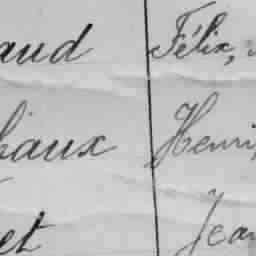 aud Félix,
haux Henri,
et Jean